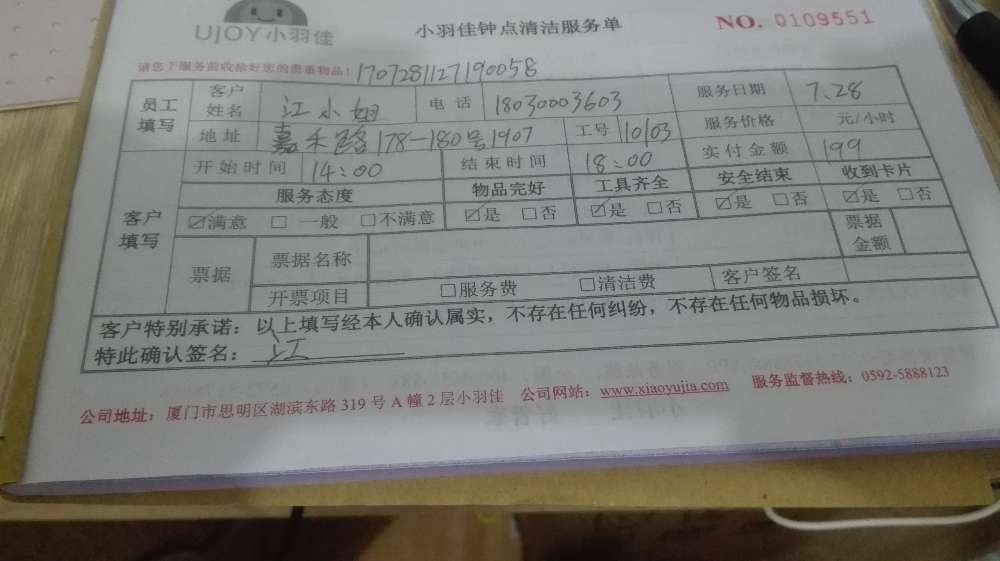 UJOY小羽佳
小羽佳钟点清洁服务单
NO. 0109551
请您于服务前收拾好您的贵重物品！1707281127190058
员工填写 客户姓名 江小姐 电话 18030003603 服务日期 7.28
地址 嘉禾路178-180号1907 工号 10103 服务价格 元/小时
客户填写 开始时间 14:00 结束时间 18:00 实付金额 199
服务态度 物品完好 工具齐全 安全结束 收到卡片
☑满意 □ 一般 □不满意 ☑是 □否 ☑是 □否 ☑是 □否 ☑是 □否
票据 票据名称 票据金额
开票项目 □服务费 □清洁费 客户签名
客户特别承诺：以上填写经本人确认属实，不存在任何纠纷，不存在任何物品损坏。
特此确认签名：江
公司地址：厦门市思明区湖滨东路 319 号 A 幢 2 层小羽佳 公司网站：www.xiaoyujia.com 服务监督热线：0592-5888123